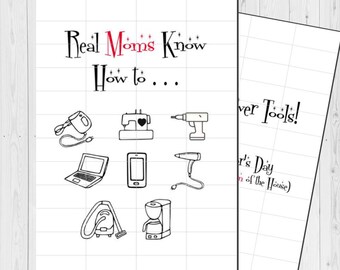 Real Moms Know
How to . . .
Tools!
Day
of the House)